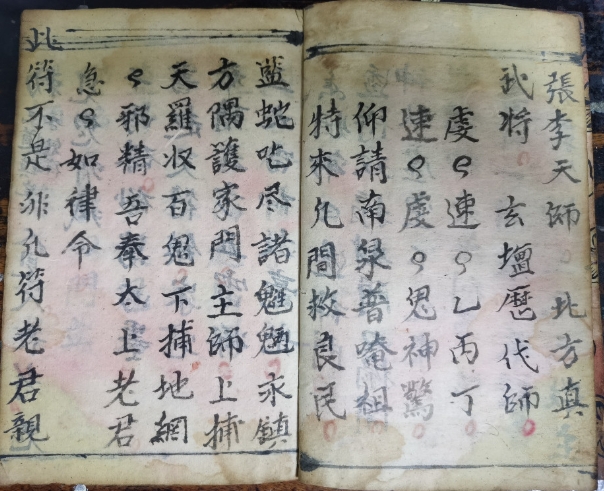 張李天師北方真
武將玄壇歷代師
虔〻速〻乙丙丁
速〻虔〻鬼神驚
仰請南泉普唵祖
特來凡間救良民
蓝蛇吃尽諸魈魎永鎮
方隅護家門主師上捕
天羅収百鬼下捕地網
〻邪精吾奉太上老君
急〻如律令
此符不是非凡符老君親